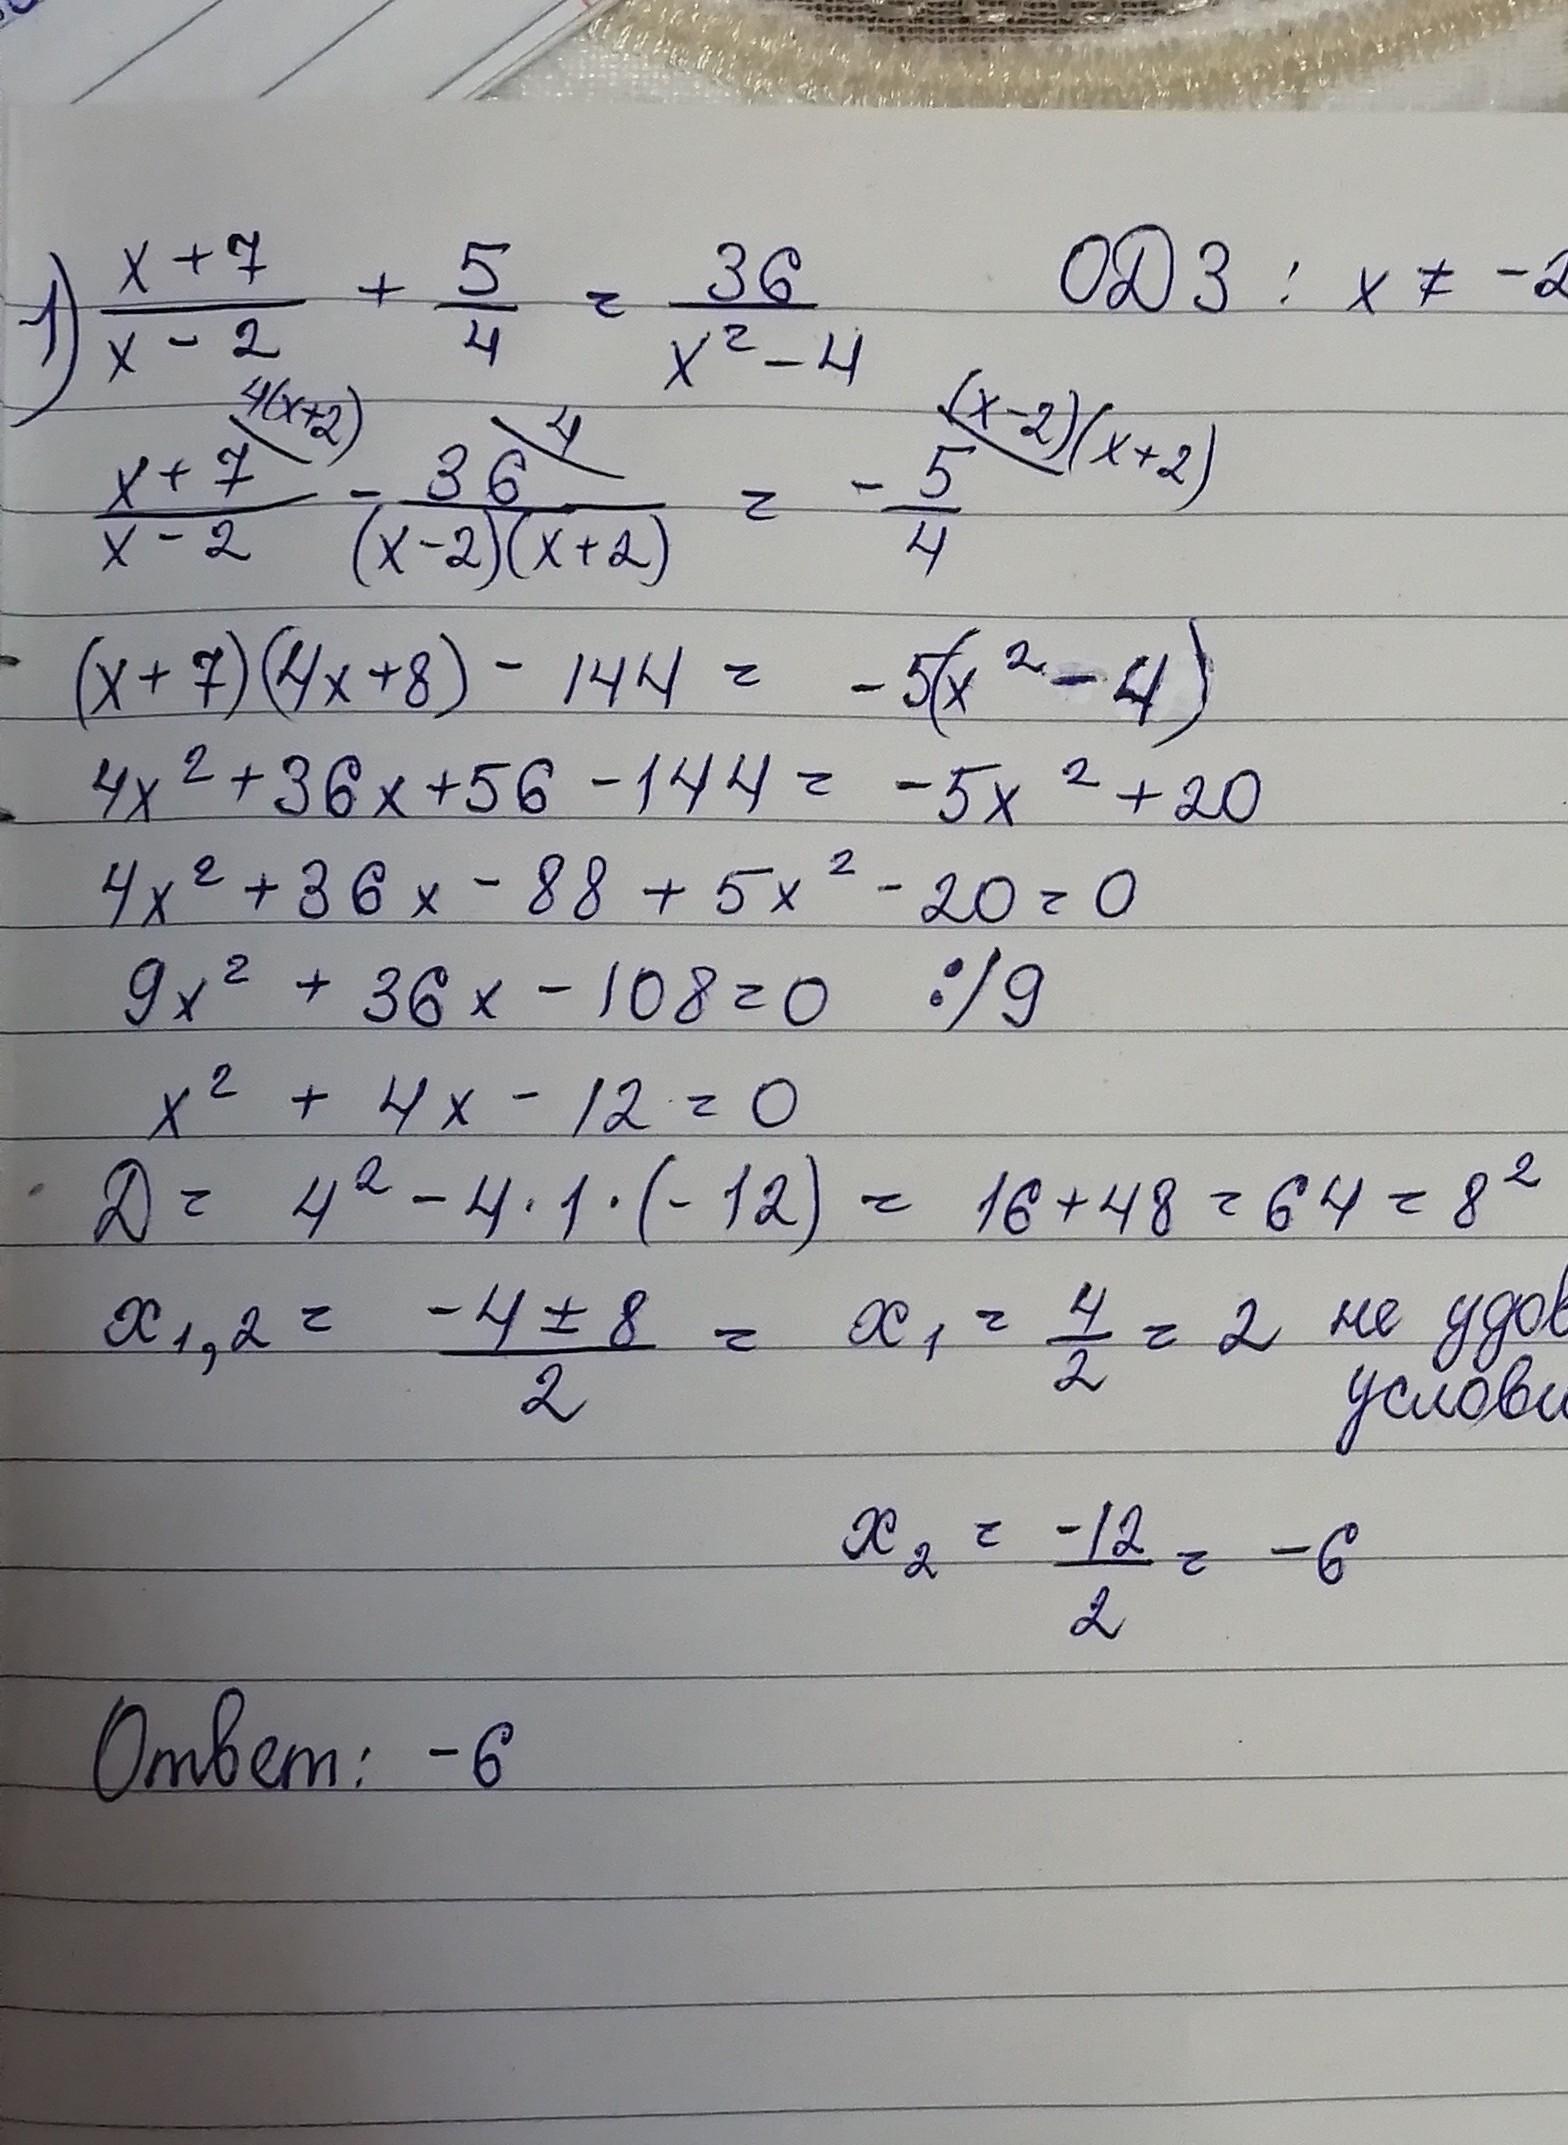 1) (x+7)/(x-2) + 5/4 = 36/(x²-4) ОДЗ: x ≠ -2
(x+7)/(x-2) ^4(x+2) - 36/((x-2)(x+2)) ^4 = -5/4 ^(x-2)(x+2)
(x+7)(4x+8) - 144 = -5(x²-4)
4x²+36x+56-144 = -5x²+20
4x²+36x-88+5x²-20=0
9x²+36x-108=0 :/9
x²+4x-12=0
D= 4²-4·1·(-12) = 16+48=64=8²
x₁,₂ = (-4±8)/2 = x₁ = 4/2 = 2 не удов
услови
x₂ = -12/2 = -6
Ответ: -6